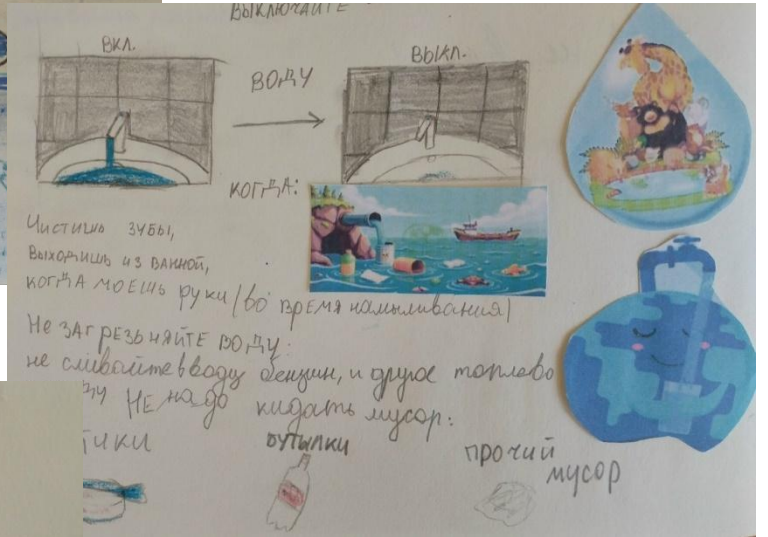 ВЫКЛЮЧАЙТЕ
ВКЛ.
ВОДУ
ВЫКЛ.
КОГДА:
ЧИСТИШЬ ЗУБЫ,
ВЫХОДИШЬ ИЗ ВАННОЙ,
КОГДА МОЕШЬ РУКИ (ВО ВРЕМЯ НАМЫЛИВАНИЯ)
НЕ ЗАГРЕЗЬНЯЙТЕ ВОДУ:
не сливайте в воду бензин, и другое топлево
НЕ надо кидать мусор:
БУТЫЛКИ
ПРОЧИЙ
МУСОР